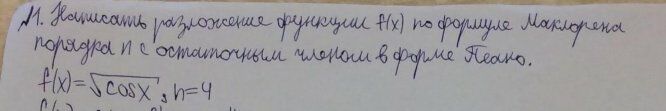 №1. Написать разложение функции f(x) по формуле Маклорена
порядка n с остаточным членом в форме Пеано.
f(x)=√cosx, n=4